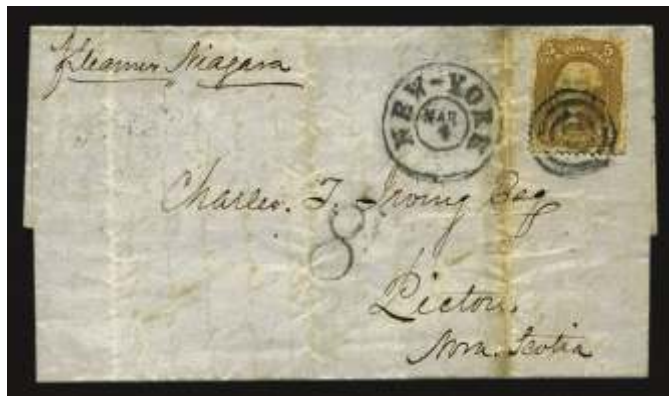 Steamer Niagara
NEW-YORK
MAR
4
5 5
Charles. T. Irving Esq
8
Pictou.
Nova. Scotia